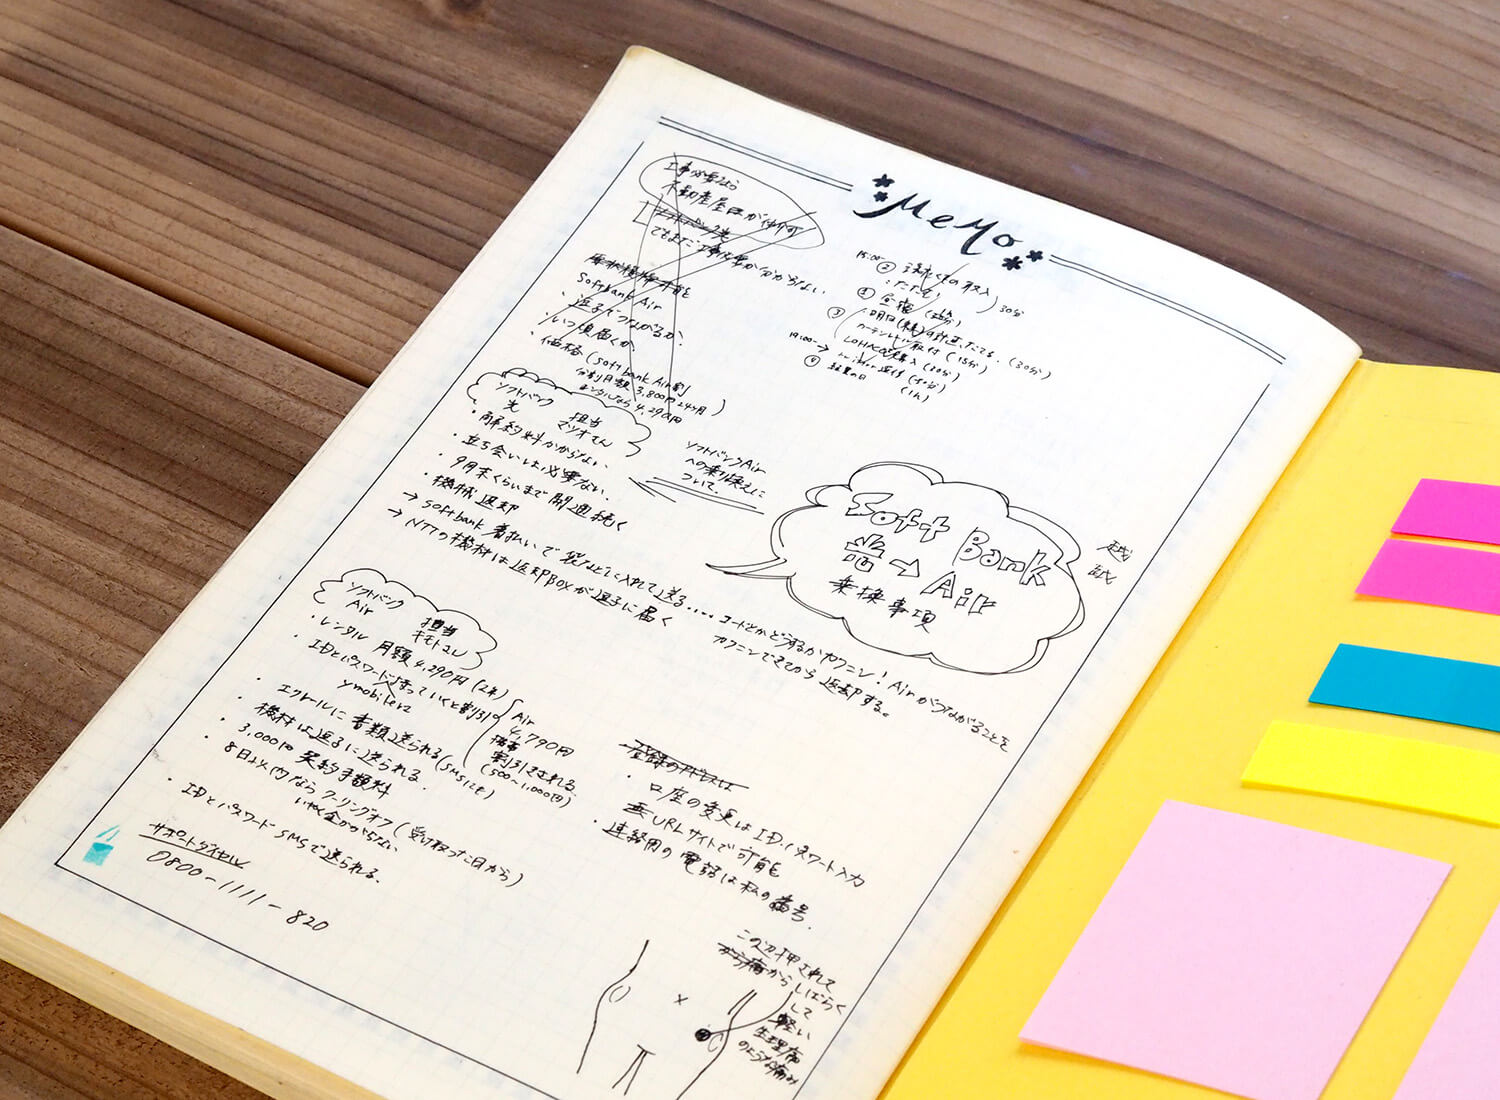 MeMo
不動産屋
でもまだ
分からない
Softbank Air
・逗子でつながるか?
いつ頃届くか?
・価格(Softbank Air割
分割月額 3,800円 24ヶ月
レンタルなら 4,290円
15:00
②
の収入
30分
①
③
・明日
の計画、たてる。(30分)
カーテンレール取付(15分)
LOHACO購入(20分)
19:00→
④
(1h)
ソフトバンク
光
担当
マツオさん
・解約料かからない
・立ち会いは必要ない。
・9月末くらいまで開通続く
・機械返却
→softbank 着払いで袋などに入れて送る.....コードとかどうするかカクニン!Airがつながることを
カクニンできてから返却する。
→NTTの機材は返却BOXが逗子に届く
ソフトバンクAir
への乗り換えに
ついて。
Soft Bank
光→Air
乗換事項
ソフトバンク
Air
担当
キモトさん
・レンタル 月額 4,290円(2年)
・IDとパスワード持っていくと割引
ymobile
Air
4,790円
割引される
(500~1,000円)
・エクレールに書類送られる(SMSにも)
・機材は逗子に送られる。
・3,000円 契約手数料
・8日以内ならクーリングオフ(受け取った日から)
金かからない
・IDとパスワード SMSで送られる。
サポートダイヤル
0800-1111-820
・口座の変更はID、パスワード入力
URLサイトで可能
・連絡用の電話は私の番号。
この辺押されて
からしばらく
して
軽い
生理痛
のような痛み